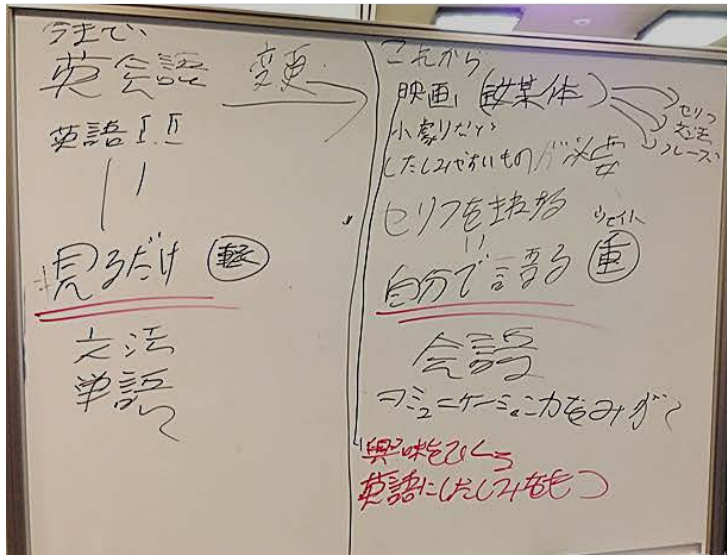 今まで、
英会話 変更
英語Ⅰ.Ⅱ
||
見るだけ 軽
文法
単語
これから
映画 (女媒体)
セリフ
文法
フレーズ
小劇などの
したしみやすいものが必要
セリフをまねる
||
ウェイト
自分で語る 重
会話
コミュニケーション力をみがく
興味をひく
英語にしたしみをもつ